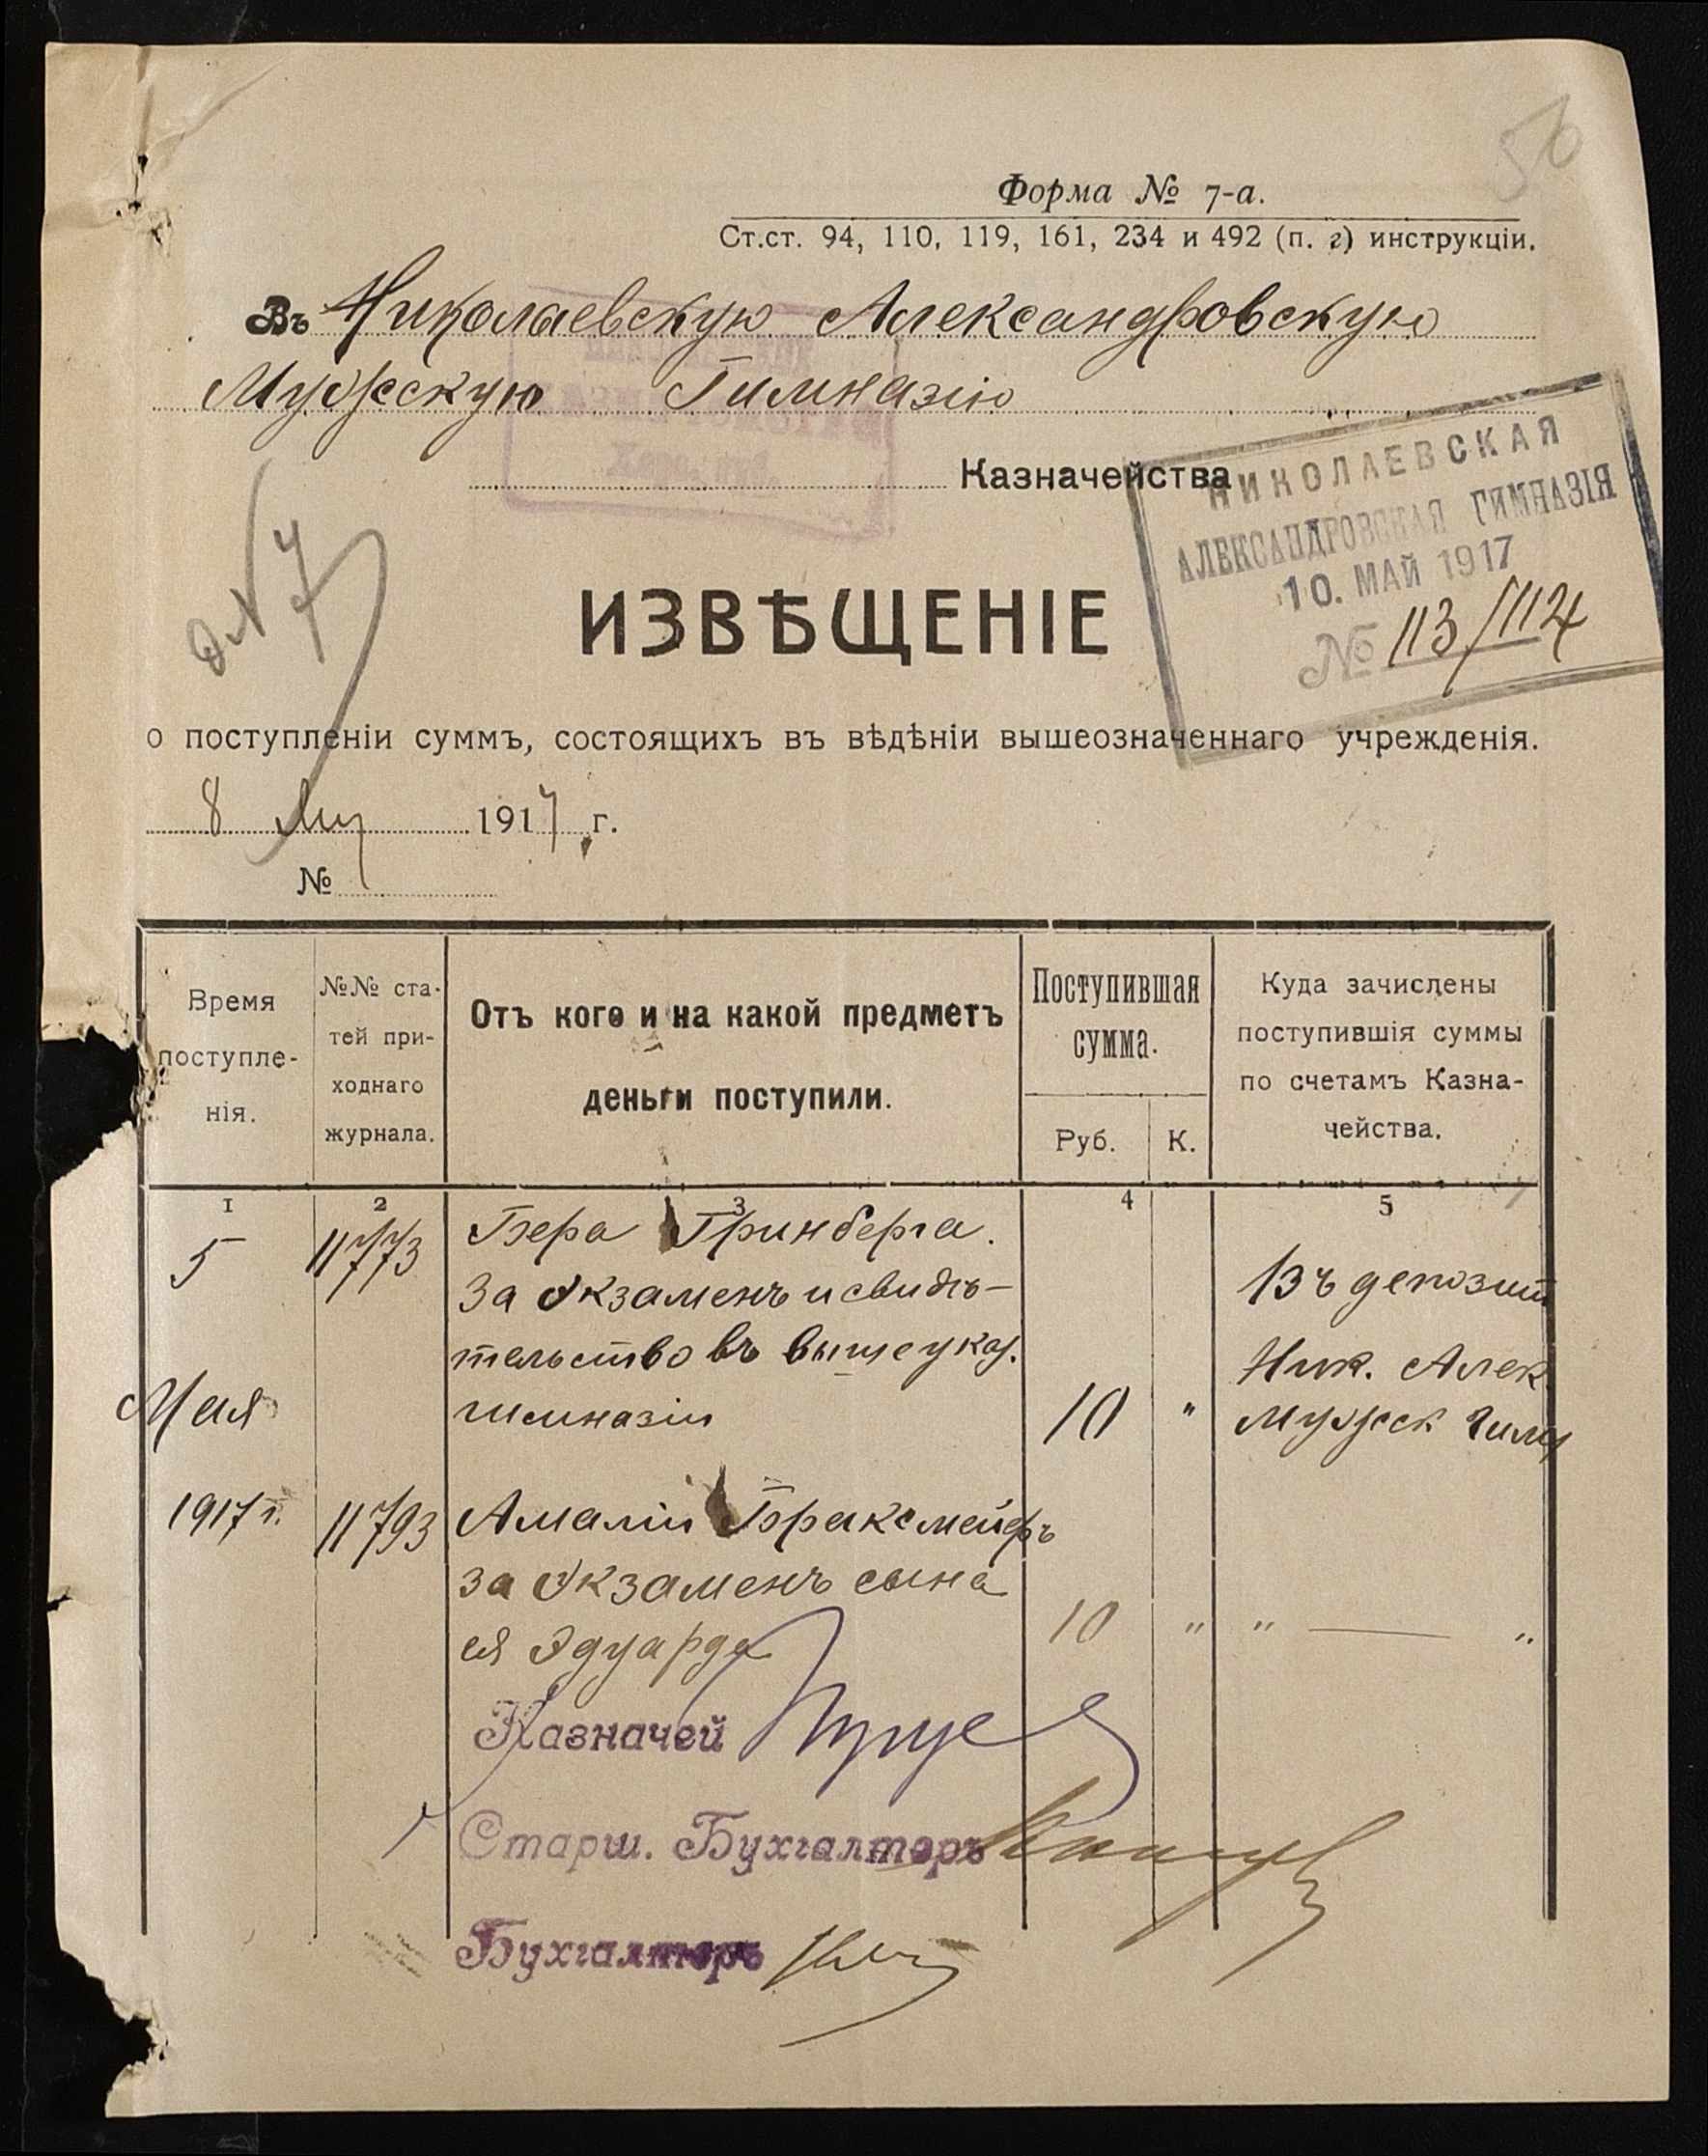 50
Форма № 7-а.
Ст.ст. 94, 110, 119, 161, 234 и 492 (п. г) инструкціи.
Въ Николаевскую Александровскую
Мужскую Гимназію
Казначейства
НИКОЛАЕВСКАЯ
АЛЕКСАНДРОВСКАЯ ГИМНАЗІЯ
10. МАЙ 1917
№ 113/114
ИЗВѢЩЕНІЕ
о поступленіи суммъ, состоящихъ въ вѣдѣніи вышеозначеннаго учрежденія.
8 Мая 1917 г.
№
Время поступле-нія.
№№ ста-тей при-ходнаго журнала.
Отъ кого и на какой предметъ деньги поступили.
Поступившая сумма.
Руб. К.
Куда зачислены поступившія суммы по счетамъ Казна-чейства.
1 2 3 4 5
5 11773 Бера Гринберга.
За экзаменъ и свидѣ- Въ депозит
тельство въ вышеуказ. Ник. Алек.
Мая гимназіи 10 " Мужск Гимн
1917 г. 11793 Амаліи Браксмейеръ
за экзаменъ сына
ея Эдуарда 10 " " — "
Казначей
Старш. Бухгалтеръ
Бухгалтеръ